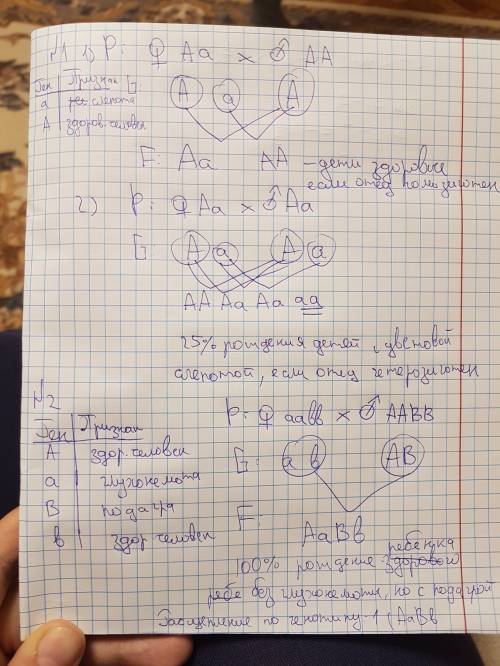 №1 1) P: ♀ Aa × ♂ AA
Ген Признак G: A a A
а слепота
А здоров. человек
F: Aa AA – дети здоровые
если отец гомозиготен
2) P: ♀ Aa × ♂ Aa
G: A a A a
AA Aa Aa aa
25% рождения детей с цветовой
слепотой, если отец гетерозиготен
№2
P: ♀ aaвв × ♂ AABB
Ген Признак
А здор. человек
G: aв AB
а глухонемота
В подагра
F: AaBв
в здор человек
ребёнка
100% рождение здорового
ребе без глухонемоты, но с подагрой
Расщепление по генотипу-1 (AaBв